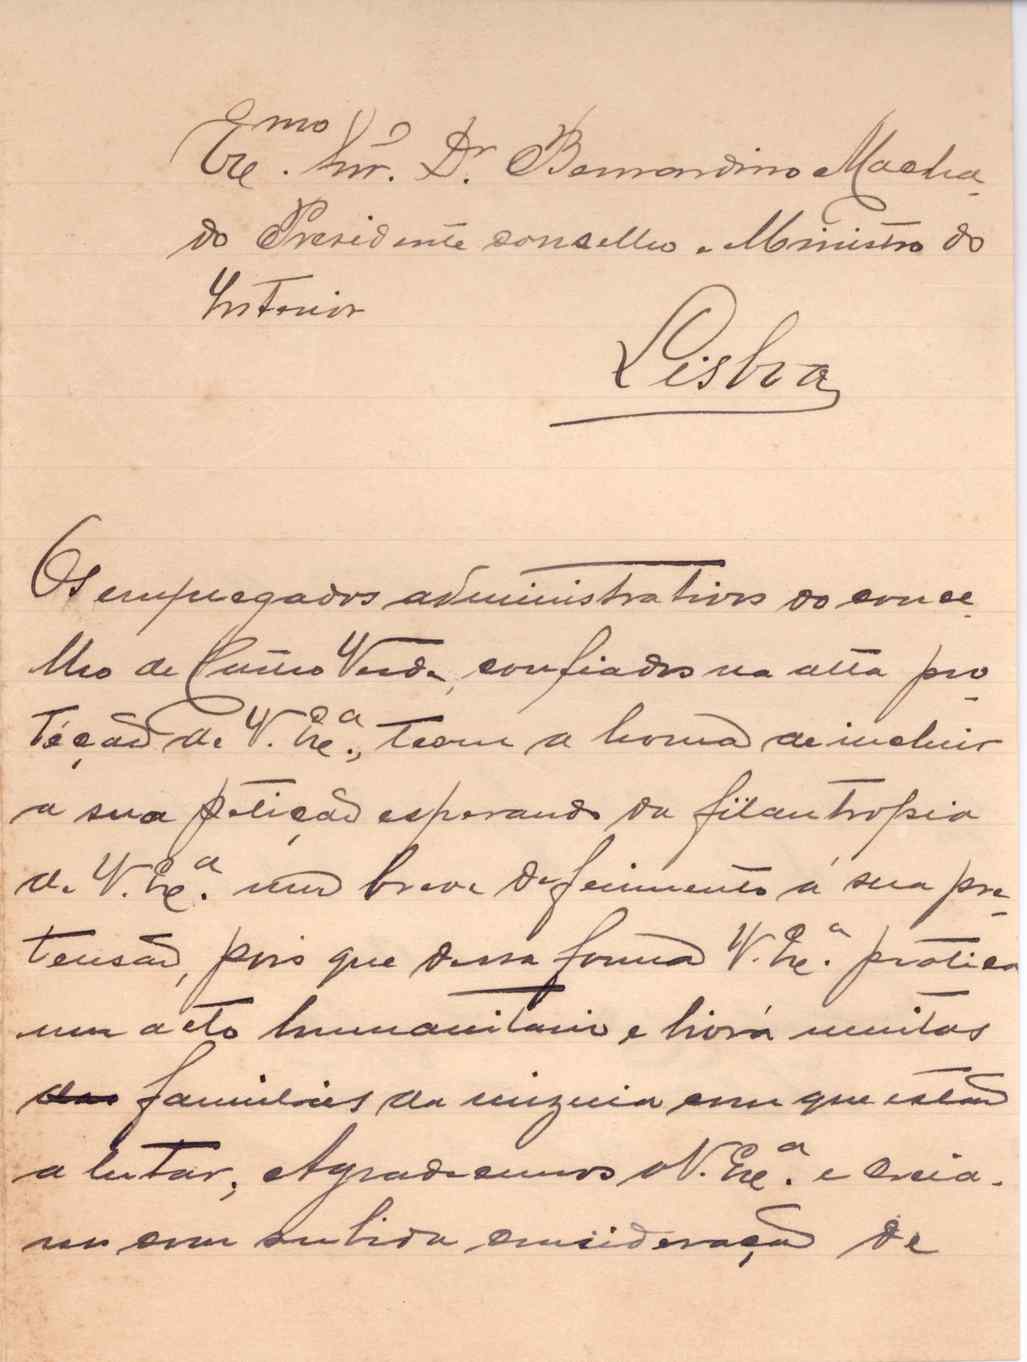 Exc.mo Snr. Dr. Bernardino Macha-
do Presidente conselho e Ministro do
Interior
Lisboa
Os empregados administrativos do conce-
lho de Castro Verde, confiados na alta pro-
téção de V. Exc.a, teem a honra de incluir
a sua petição esperando da filantropia
de V. Exc.a um breve deferimento á sua pre-
tensão, pois que dessa forma V. Exc.a pratica
um acto humanitario e livrá muitas
das familias da mizeria em que estão
a lutar, Agradecemos a V. Exc.a e creia-
nos com subida consideração de